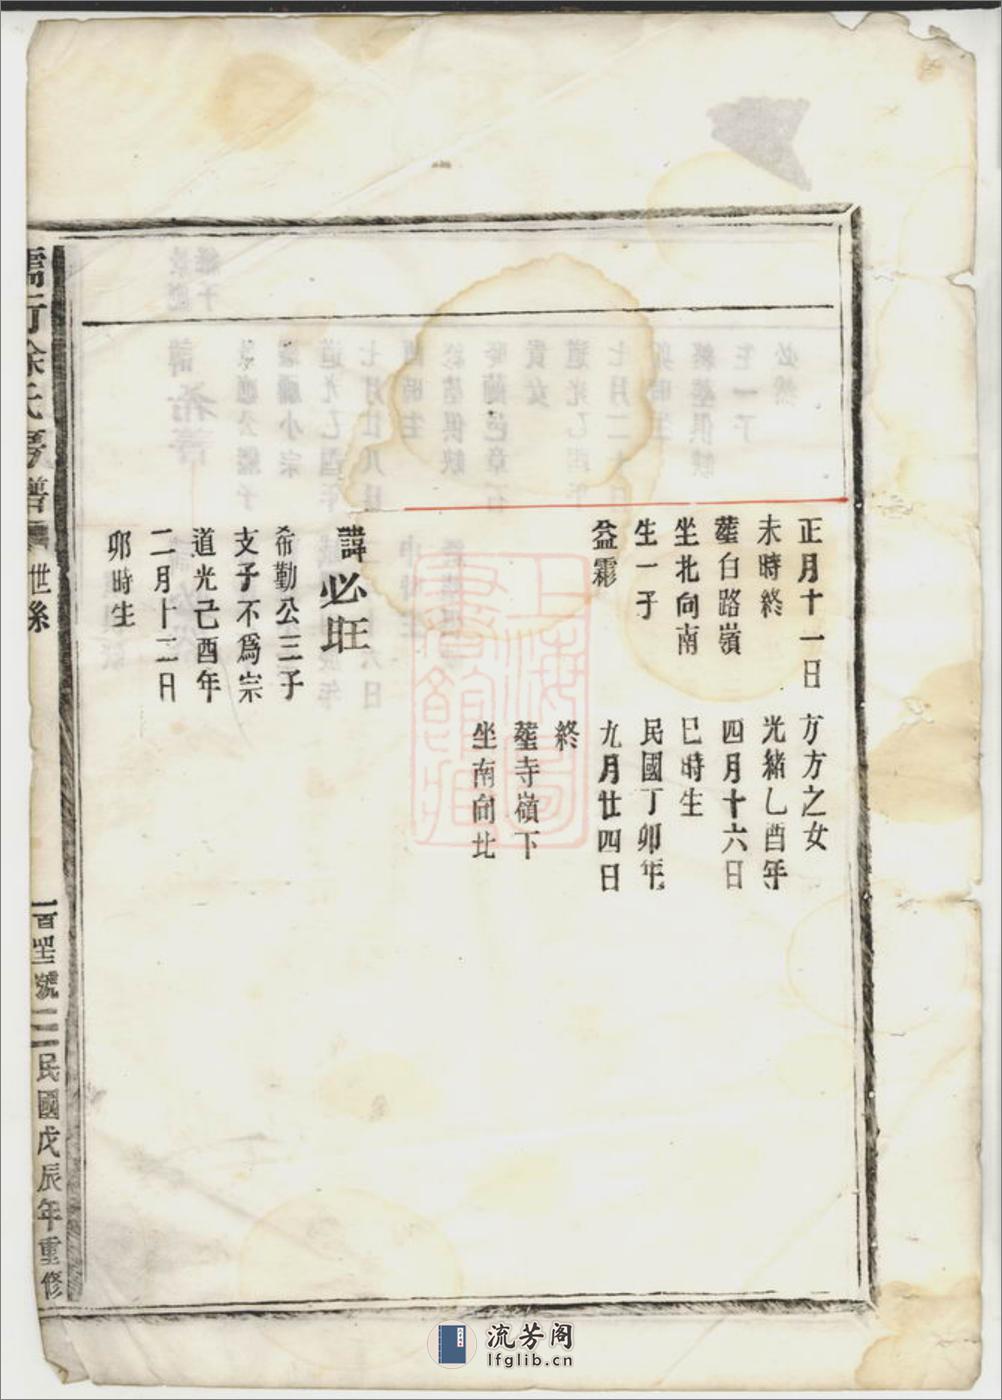 正月十一日
未時終
塟白路嶺
坐北向南
生一子
益霖
諱必旺
希勤公三子
支子不爲宗
道光己酉年
二月十二日
卯時生
方方之女
光緒乙酉年
四月十六日
巳時生
民國丁卯年
九月廿四日
終
塟寺嶺下
坐南向北
徐氏房譜
世系
一百
號
民國戊辰年重修
上海圖書館藏
流芳阁
lfglib.cn